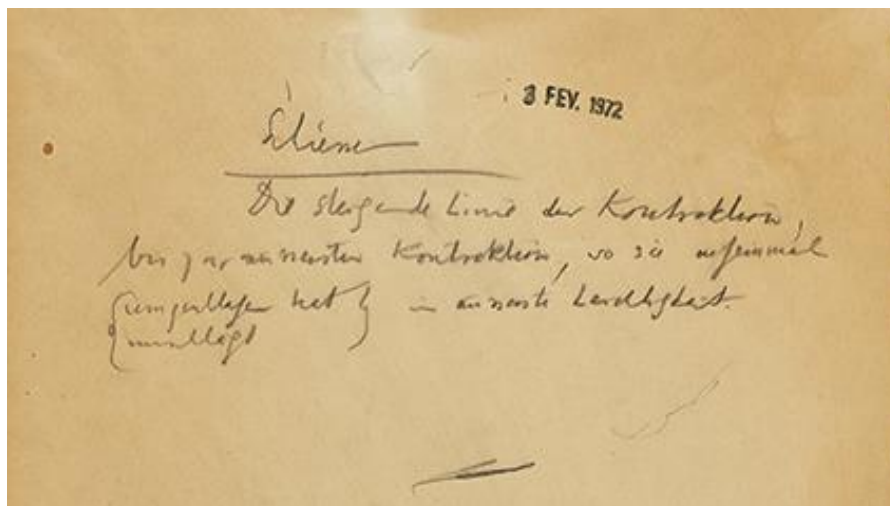 3 FEV. 1972
Die steigende Linie der Kontraktion,
bis zur äussersten Kontraktion, wo sie auf einmal
{umgeschlagen hat} in äusserste
{umschlägt